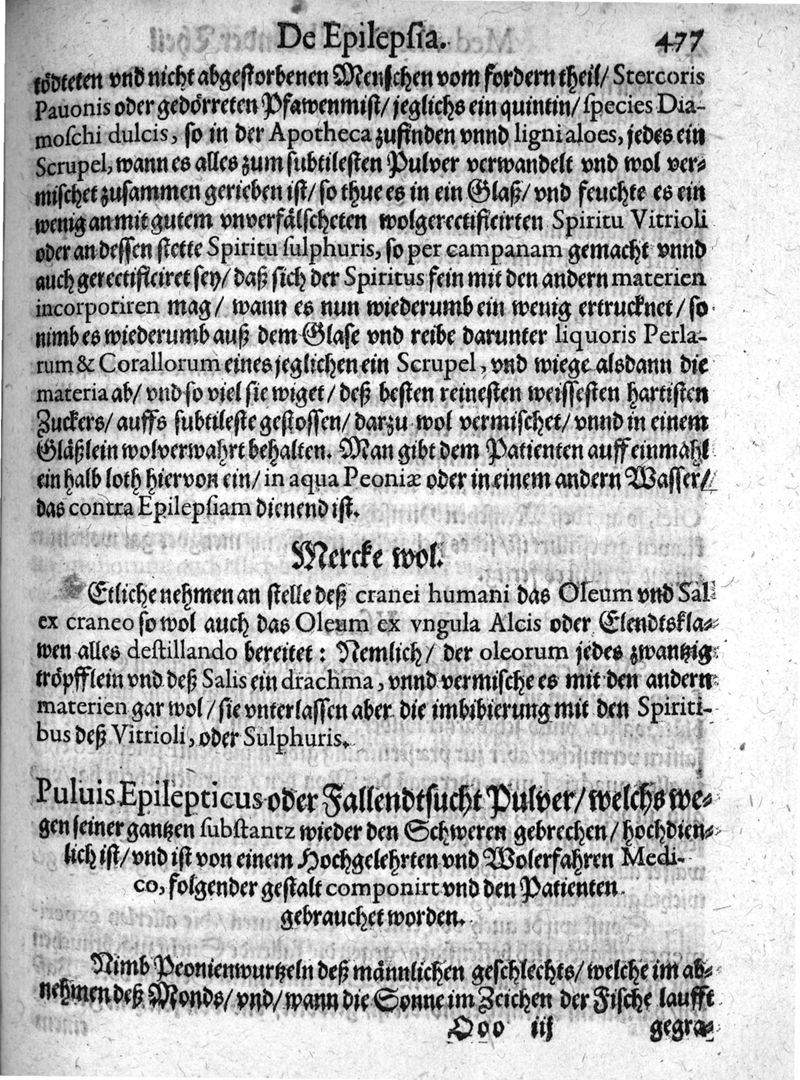 De Epilepsia. 477
tödteten vnd nicht abgestorbenen Menschen vom fordern theil/ Stercoris
Pauonis oder gedörreten Pfawenmist/ jeglichs ein quintin/ species Dia-
moschi dulcis, so in der Apotheca zufinden vnnd ligni aloes, jedes ein
Scrupel, wann es alles zum subtilesten Pulver verwandelt vnd wol ver-
mischet zusammen gerieben ist/ so thue es in ein Glaß/ vnd feuchte es ein
wenig an mit gutem vnverfälscheten wolgerectificirten Spiritu Vitrioli
oder an dessen stette Spiritu sulphuris, so per campanam gemacht vnnd
auch gerectificiret sey/ daß sich der Spiritus fein mit den andern materien
incorporiren mag/ wann es nun wiederumb ein wenig ertrucknet/ so
nimb es wiederumb auß dem Glase vnd reibe darunter liquoris Perla-
rum & Corallorum eines jeglichen ein Scrupel, vnd wiege alsdann die
materia ab/ vnd so viel sie wiget/ deß besten reinesten weissesten hartisten
Zuckers/ auffs subtileste gestossen/ darzu wol vermischet/ vnnd in einem
Gläßlein wolverwahrt behalten. Man gibt dem Patienten auff einmahl
ein halb loth hiervon ein/ in aqua Peoniæ oder in einem andern Wasser/
das contra Epilepsiam dienend ist.
Mercke wol.
Etliche nehmen an stelle deß cranei humani das Oleum vnd Sal
ex craneo so wol auch das Oleum ex vngula Alcis oder Elendtskla-
wen alles destillando bereitet: Nemlich/ der oleorum jedes zwantzig
tröpfflein vnd deß Salis ein drachma, vnnd vermische es mit den andern
materien gar wol/ sie vnterlassen aber die imbibierung mit den Spiriti-
bus deß Vitrioli, oder Sulphuris.
Puluis Epilepticus oder Fallendtsucht Pulver/ welchs we-
gen seiner gantzen substantz wieder den Schweren gebrechen/ hochdien-
lich ist/ vnd ist von einem Hochgelehrten vnd Wolerfahren Medi-
co, folgender gestalt componirt vnd den Patienten
gebrauchet worden.
Nimb Peonienwurtzeln deß männlichen geschlechts/ welche im ab-
nehmen deß Monds/ vnd/ wann die Sonne im Zeichen der Fische laufft
Ooo iij gegra-